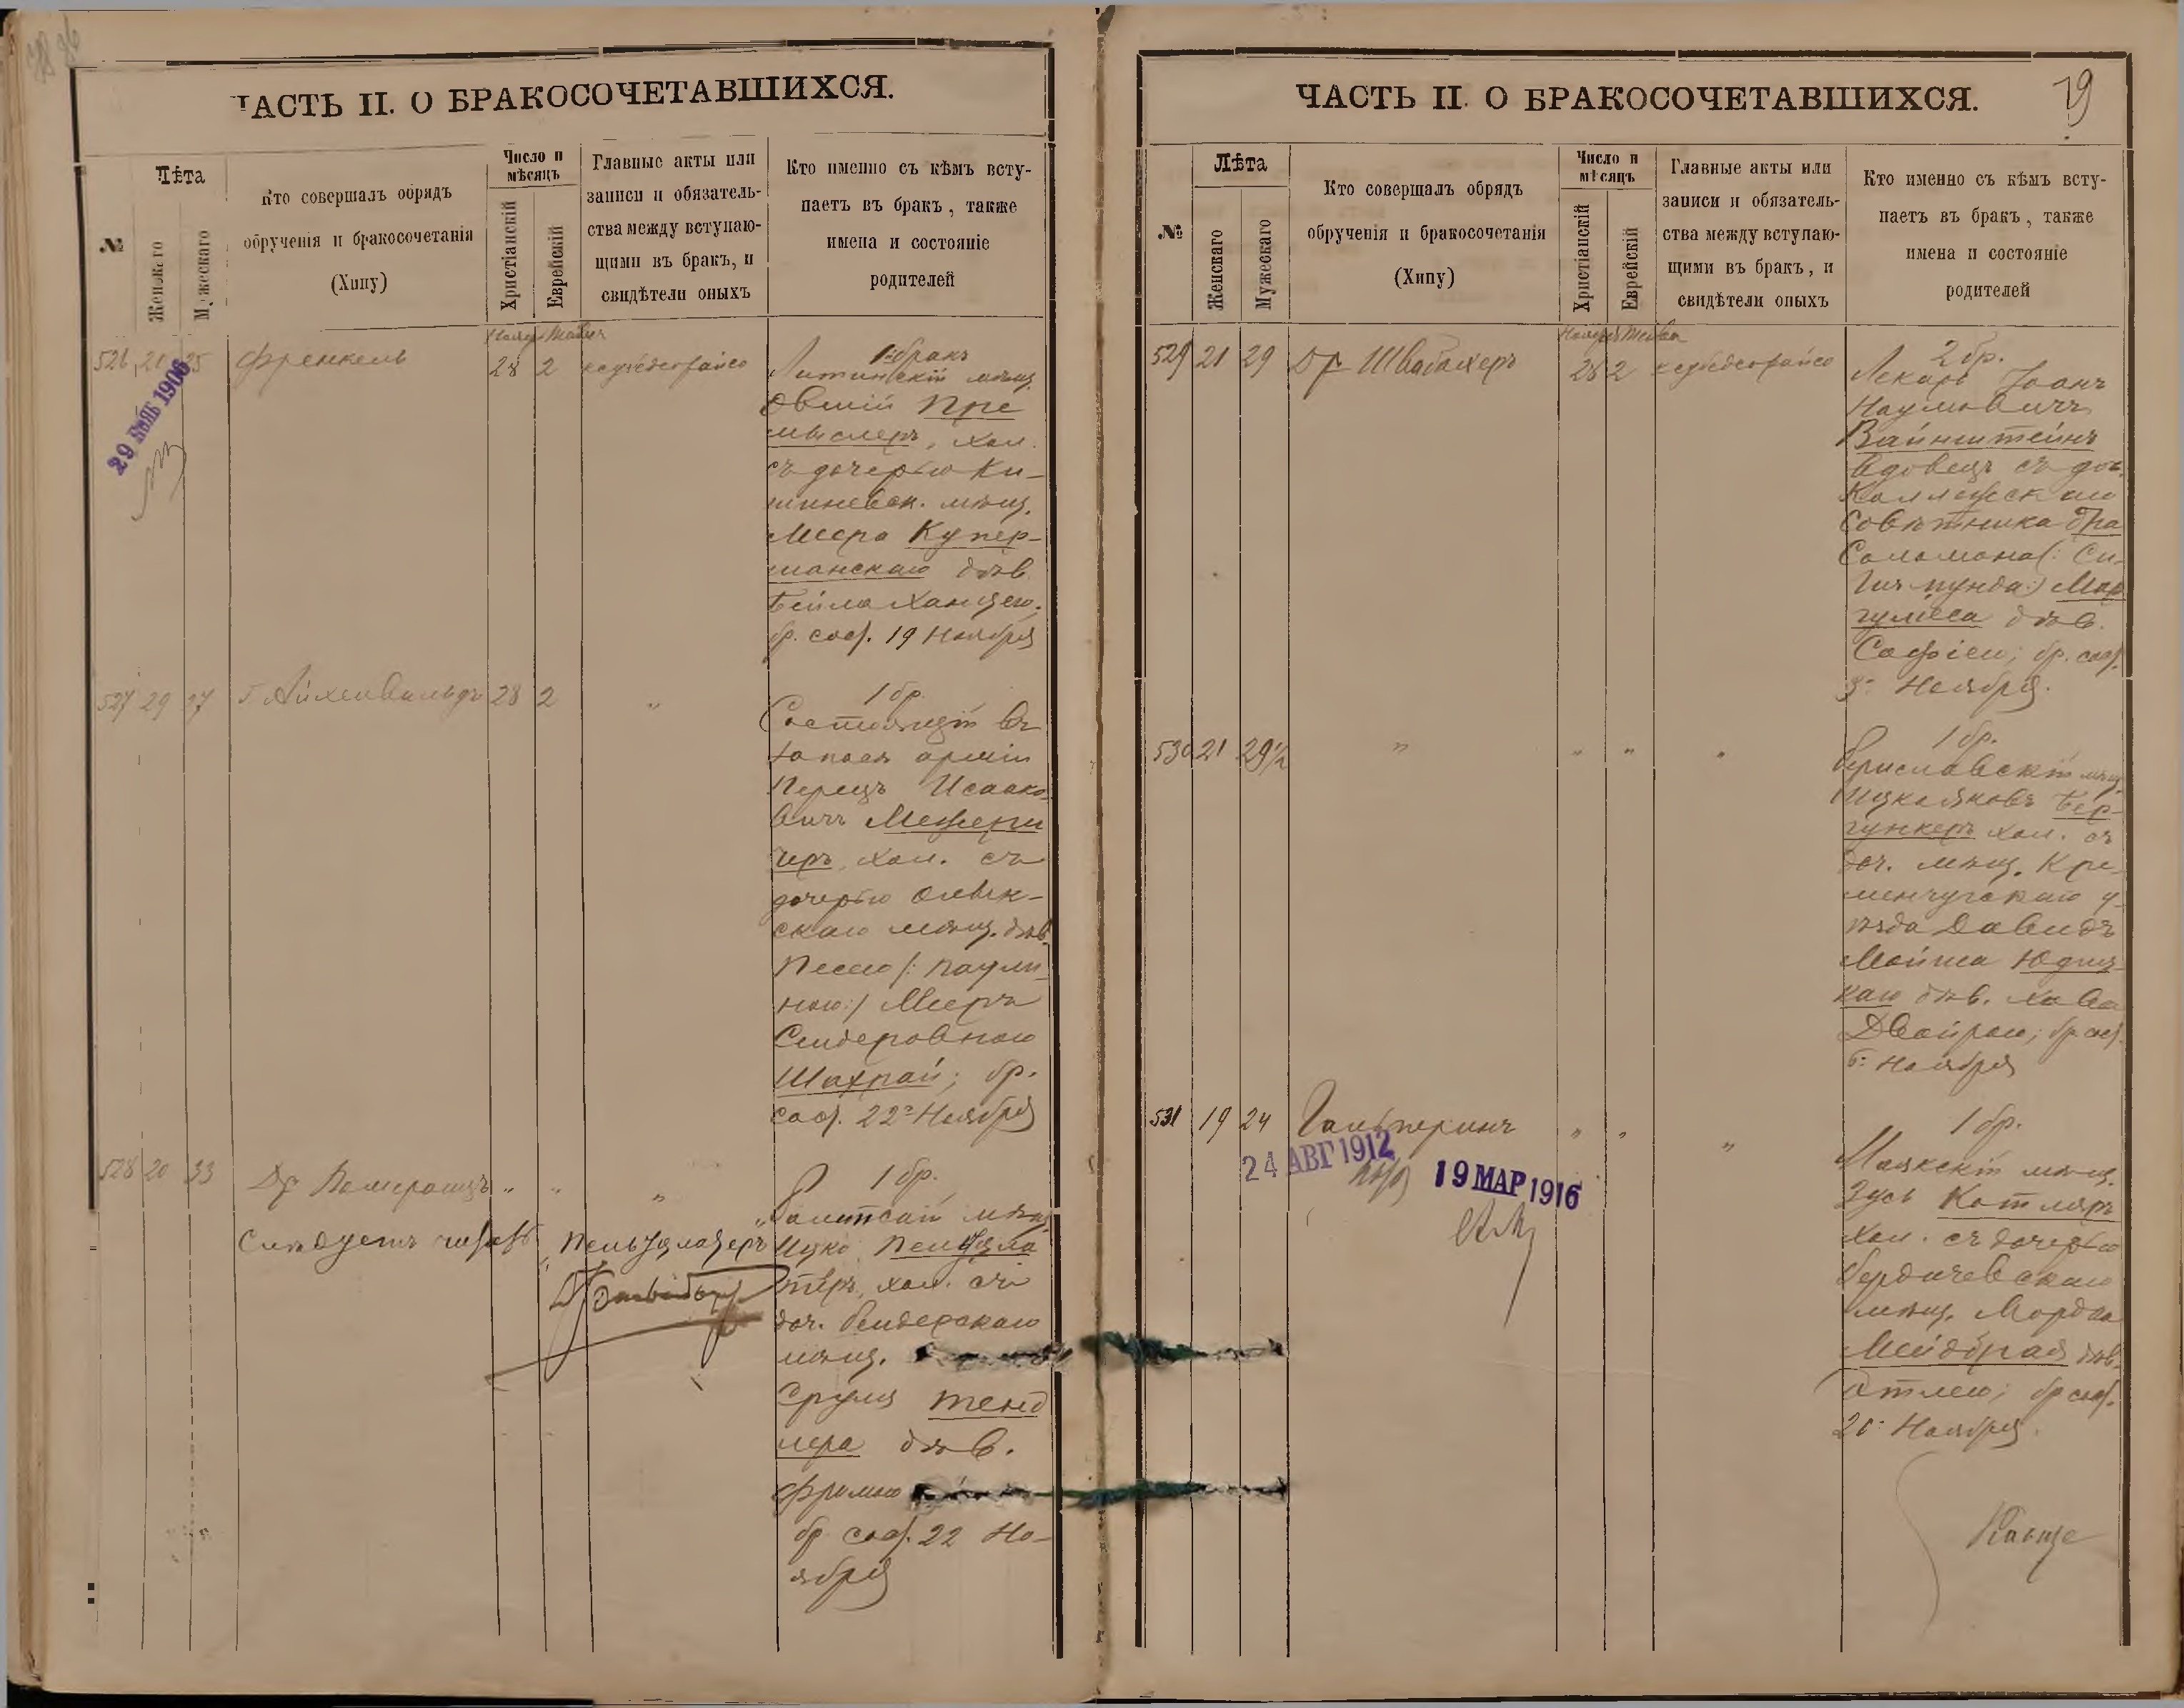 ЧАСТЬ II. О БРАКОСОЧЕТАВШИХСЯ.
№
Лѣта
Женскаго
Мужескаго
Кто совершалъ обрядъ
обрученія и бракосочетанія
(Хипу)
Число и
мѣсяцъ
Христіанскій
Еврейскій
Главные акты или
записи и обязатель-
ства между вступаю-
щими въ бракъ, и
свидѣтели оныхъ
Кто именно съ кѣмъ всту-
паетъ въ бракъ, также
имена и состояніе
родителей
526 20 25 Френкель 28 2
29 1906
1й бракъ
Литинскій мѣщ.
Овшій Пре
мыслеръ, хол.
съ дочерью Ки-
шиневск. мѣщ.
Меера Купер-
манскаго дѣв.
Бейла Ханцею;
бр. сов. 19 Ноября
527 29 37 Г Айхенвальдъ 28 2 "
1 бр.
Состоящій въ
запасѣ арміи
Перецъ Исаако-
вичъ Межери
черъ, хол. съ
дочерью Олевск-
скаго мѣщ. дѣв.
Песею /: Паули-
ною :/ Мееръ
Сендеровною
Шахрай; бр.
сов. 22го Ноября
528 20 33 Др Померанцъ " " "
1 бр.
мѣщ.
Ицко Пельцма
теръ, хол. съ
доч. Бендерскаго
мѣщ.
Сруля Тенд
лера дѣв.
Фримою
бр. сов. 22 Но-
ября
Слѣдуетъ читать "Пельцмахеръ"
ЧАСТЬ II. О БРАКОСОЧЕТАВШИХСЯ.
79
№
Лѣта
Женскаго
Мужескаго
Кто совершалъ обрядъ
обрученія и бракосочетанія
(Хипу)
Число и
мѣсяцъ
Христіанскій
Еврейскій
Главные акты или
записи и обязатель-
ства между вступаю-
щими въ бракъ, и
свидѣтели оныхъ
Кто именно съ кѣмъ всту-
паетъ въ бракъ, также
имена и состояніе
родителей
529 21 29 Др Швабахеръ 28 2
2 бр.
Лекарь Іоанъ
Наумовичъ
Вайнштейнъ
вдовецъ съ доч.
Коллежскаго
Совѣтника Дра
Соломона (: Си-
гизмунда :) Мар
гулиса дѣв.
Софіею; бр. сов.
3го Ноября.
530 21 29½ " " " "
1 бр.
Бериславскій мѣщ.
Ицко Яковъ Бер-
гункеръ хол. съ
доч. мѣщ. Кре
менчугскаго у-
ѣзда Давидъ
Мойша Юдиц-
каго дѣв. Хава
Двойрою; бр. сов.
6го Ноября
531 19 24 Гальперинъ " " "
24 АВГ 1912
19 МАР 1916
1 бр.
Маякскій мѣщ.
Зусь Котляръ
хол. съ дочерью
Бердичевскаго
мѣщ. Мордка
дѣв.
Этлею; бр. сов.
Ноября.